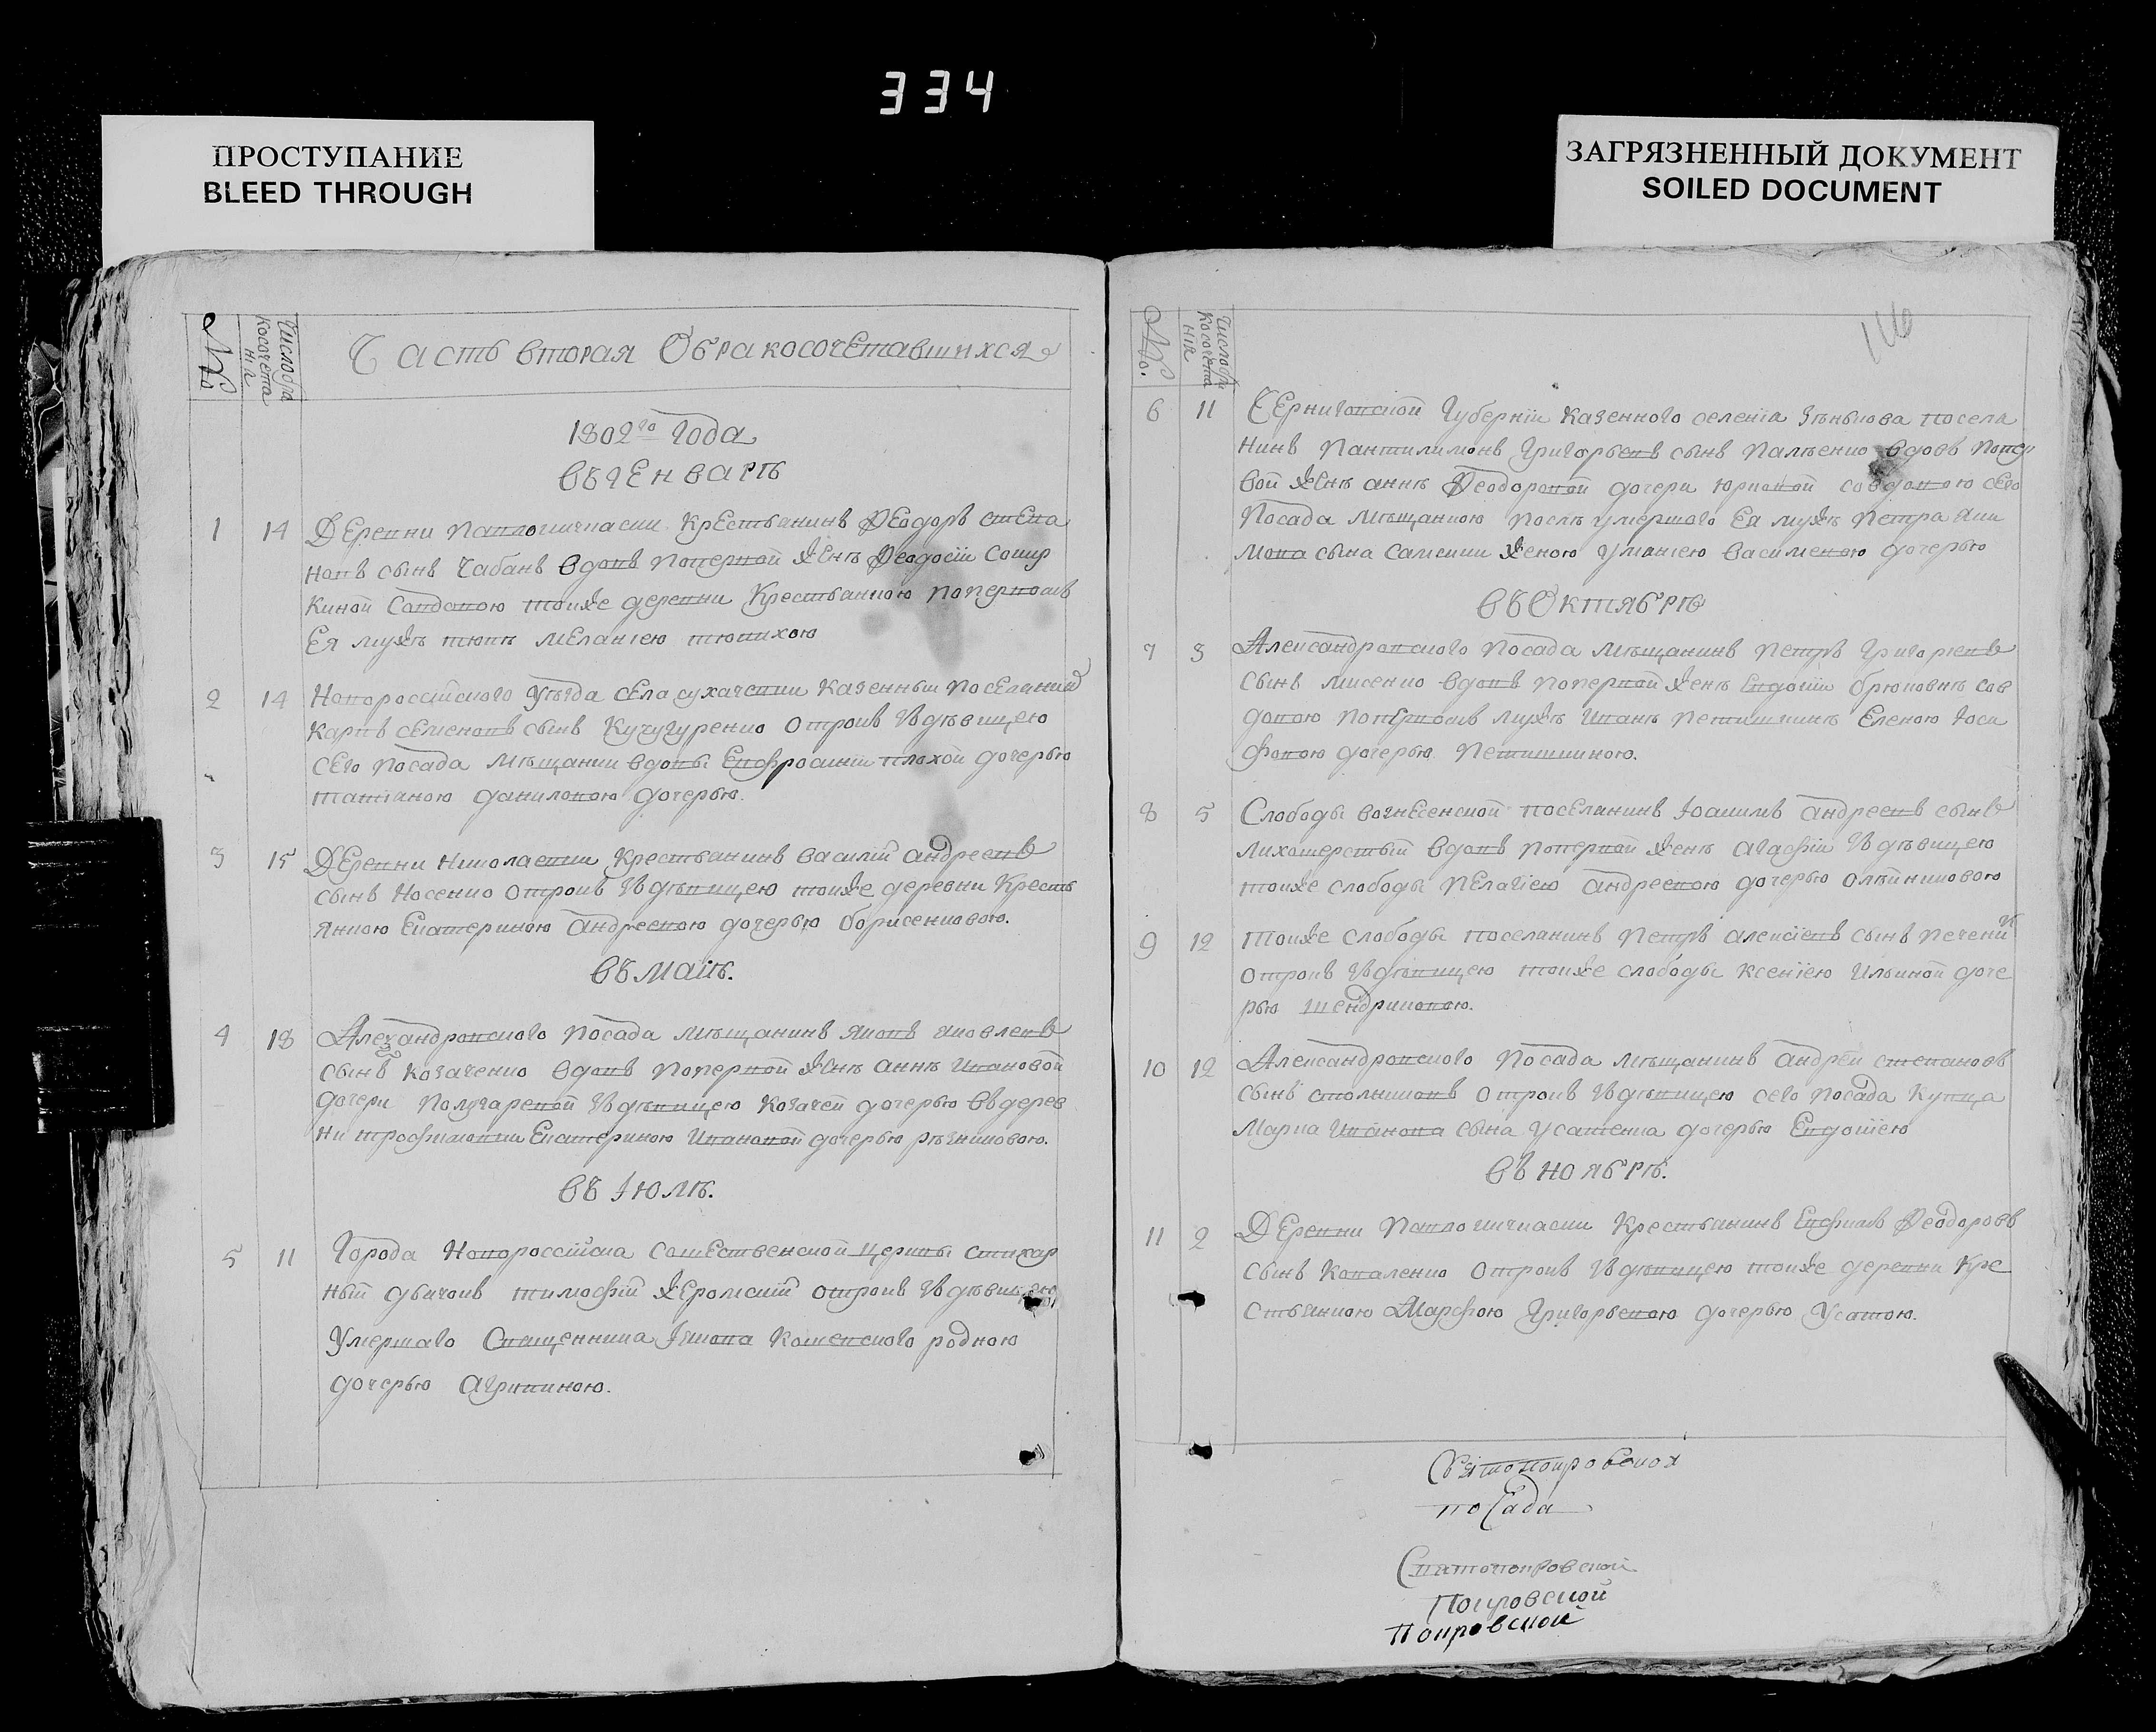 334
ПРОСТУПАНИЕ
BLEED THROUGH
ЗАГРЯЗНЕННЫЙ ДОКУМЕНТ
SOILED DOCUMENT
№
Число бра
косочета
нія
Часть вторая Обракосочетавшихся
1802го года
въ генварѣ
1 14 Деревни Павлокичкаски крестьянинъ Феодоръ степа
новъ сынъ Чабанъ вдовъ попервой женѣ Феодосіи
киной совдовою тояже деревни крестьянкою попервомъ
Ея мужѣ тюпѣ Меланіею тюпихою
2 14 Новороссійского уѣзда села сухачевки казенный поселянин
карпъ семеновъ сынъ Кучугуренко отрокъ здѣвицею
сего посада мѣщанки вдовы Евфросиніи плохой дочерью
татіаною даниловою дочерью.
3 15 Деревни николаевки крестьянинъ василій андреевъ
сынъ Носенко отрокъ здѣвицею тояже деревни кресть
янкою Екатериною андреевою дочерью борисенковою.
въ маіѣ.
4 18 Алезандровского посада мѣщанинъ яковъ яковлевъ
сынъ козаченко вдовъ попервой женѣ аннѣ ивановой
дочери здѣвицею козачей дочерью въ дерев
ни трофимовки Екатериною ивановой дочерью рѣзниковою.
въ іюлѣ.
5 11 Города новороссійска сошественской церквы стихар
ный дьячокъ тимофій жеромскій отрокъ здѣвицею
умершаго священника іякова родною
дочерью агрипиною.
116
№.
Число бра
косочета
нія
6 11 Черниговской губерніи казенного селенія зѣнькова посели
нинъ пантилимонъ григорьевъ сынъ палѣенко вдовъ попер
вой женѣ аннѣ Феодоровой дочери юрковой совдовою сего
посада мѣщанкою послѣ умершого ея мужѣ петра яки
мова сына женою улянiею василевою дочерью
въ Октябрѣ
7 3 Александровского посада мѣщанинъ петръ григориевъ
сынъ лисенко вдовъ попервой женѣ Евдокіи брюховнѣ сов
довою попервомъ мужѣ иванѣ Еленою іоси
фовою дочерью
8 5 Слободы вознесенской поселянинъ іоакимъ андреевъ сынъ
лихошерстый вдовъ попервой женѣ агафіи здѣвицею
тояже слободы пелагіею андреевою дочерью олѣйниковою
9 12 тояже слободы поселянинъ петръ алексіевъ сынъ
отрокъ здѣвицею тояже слободы ксеніею ильиной доче
рью шендриковою.
10 12 Александровского посада мѣщанинъ андрей степановъ
сынъ отрокъ здѣвицею сего посада купца
марка иванова сына усатенка дочерью Евдокіею
въ ноябрѣ.
11 2 Деревни Павлокичкаски крестьянинъ Евфимъ Феодоровъ
сынъ коваленко отрокъ здѣвицею тояже деревни кре
стьянкою Марфою григорьевою дочерью усатою.
посада
Святопокровской
Покровской
Покровской